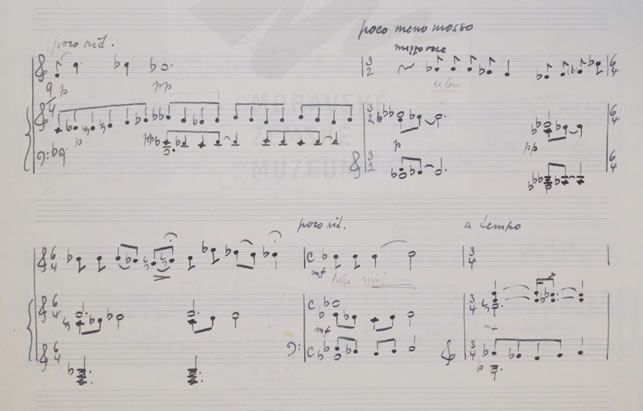 poco rit.
poco meno mosso
mezza voce
p
pp
p
pp
MORAVSKÉ
ZEMSKÉ
MUZEUM
poco rit.
a tempo
mf
mf